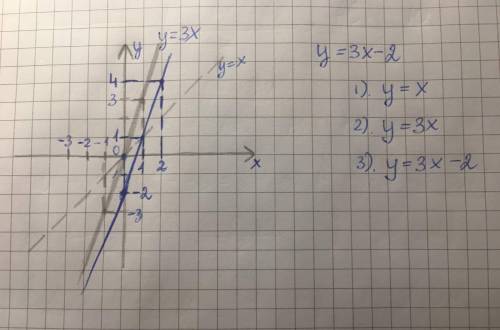 y y=3x
y=x
4
3
1
-3 -2 -1 0 1 2 x
-2
-3
y=3x-2
1). y=x
2). y=3x
3). y=3x-2